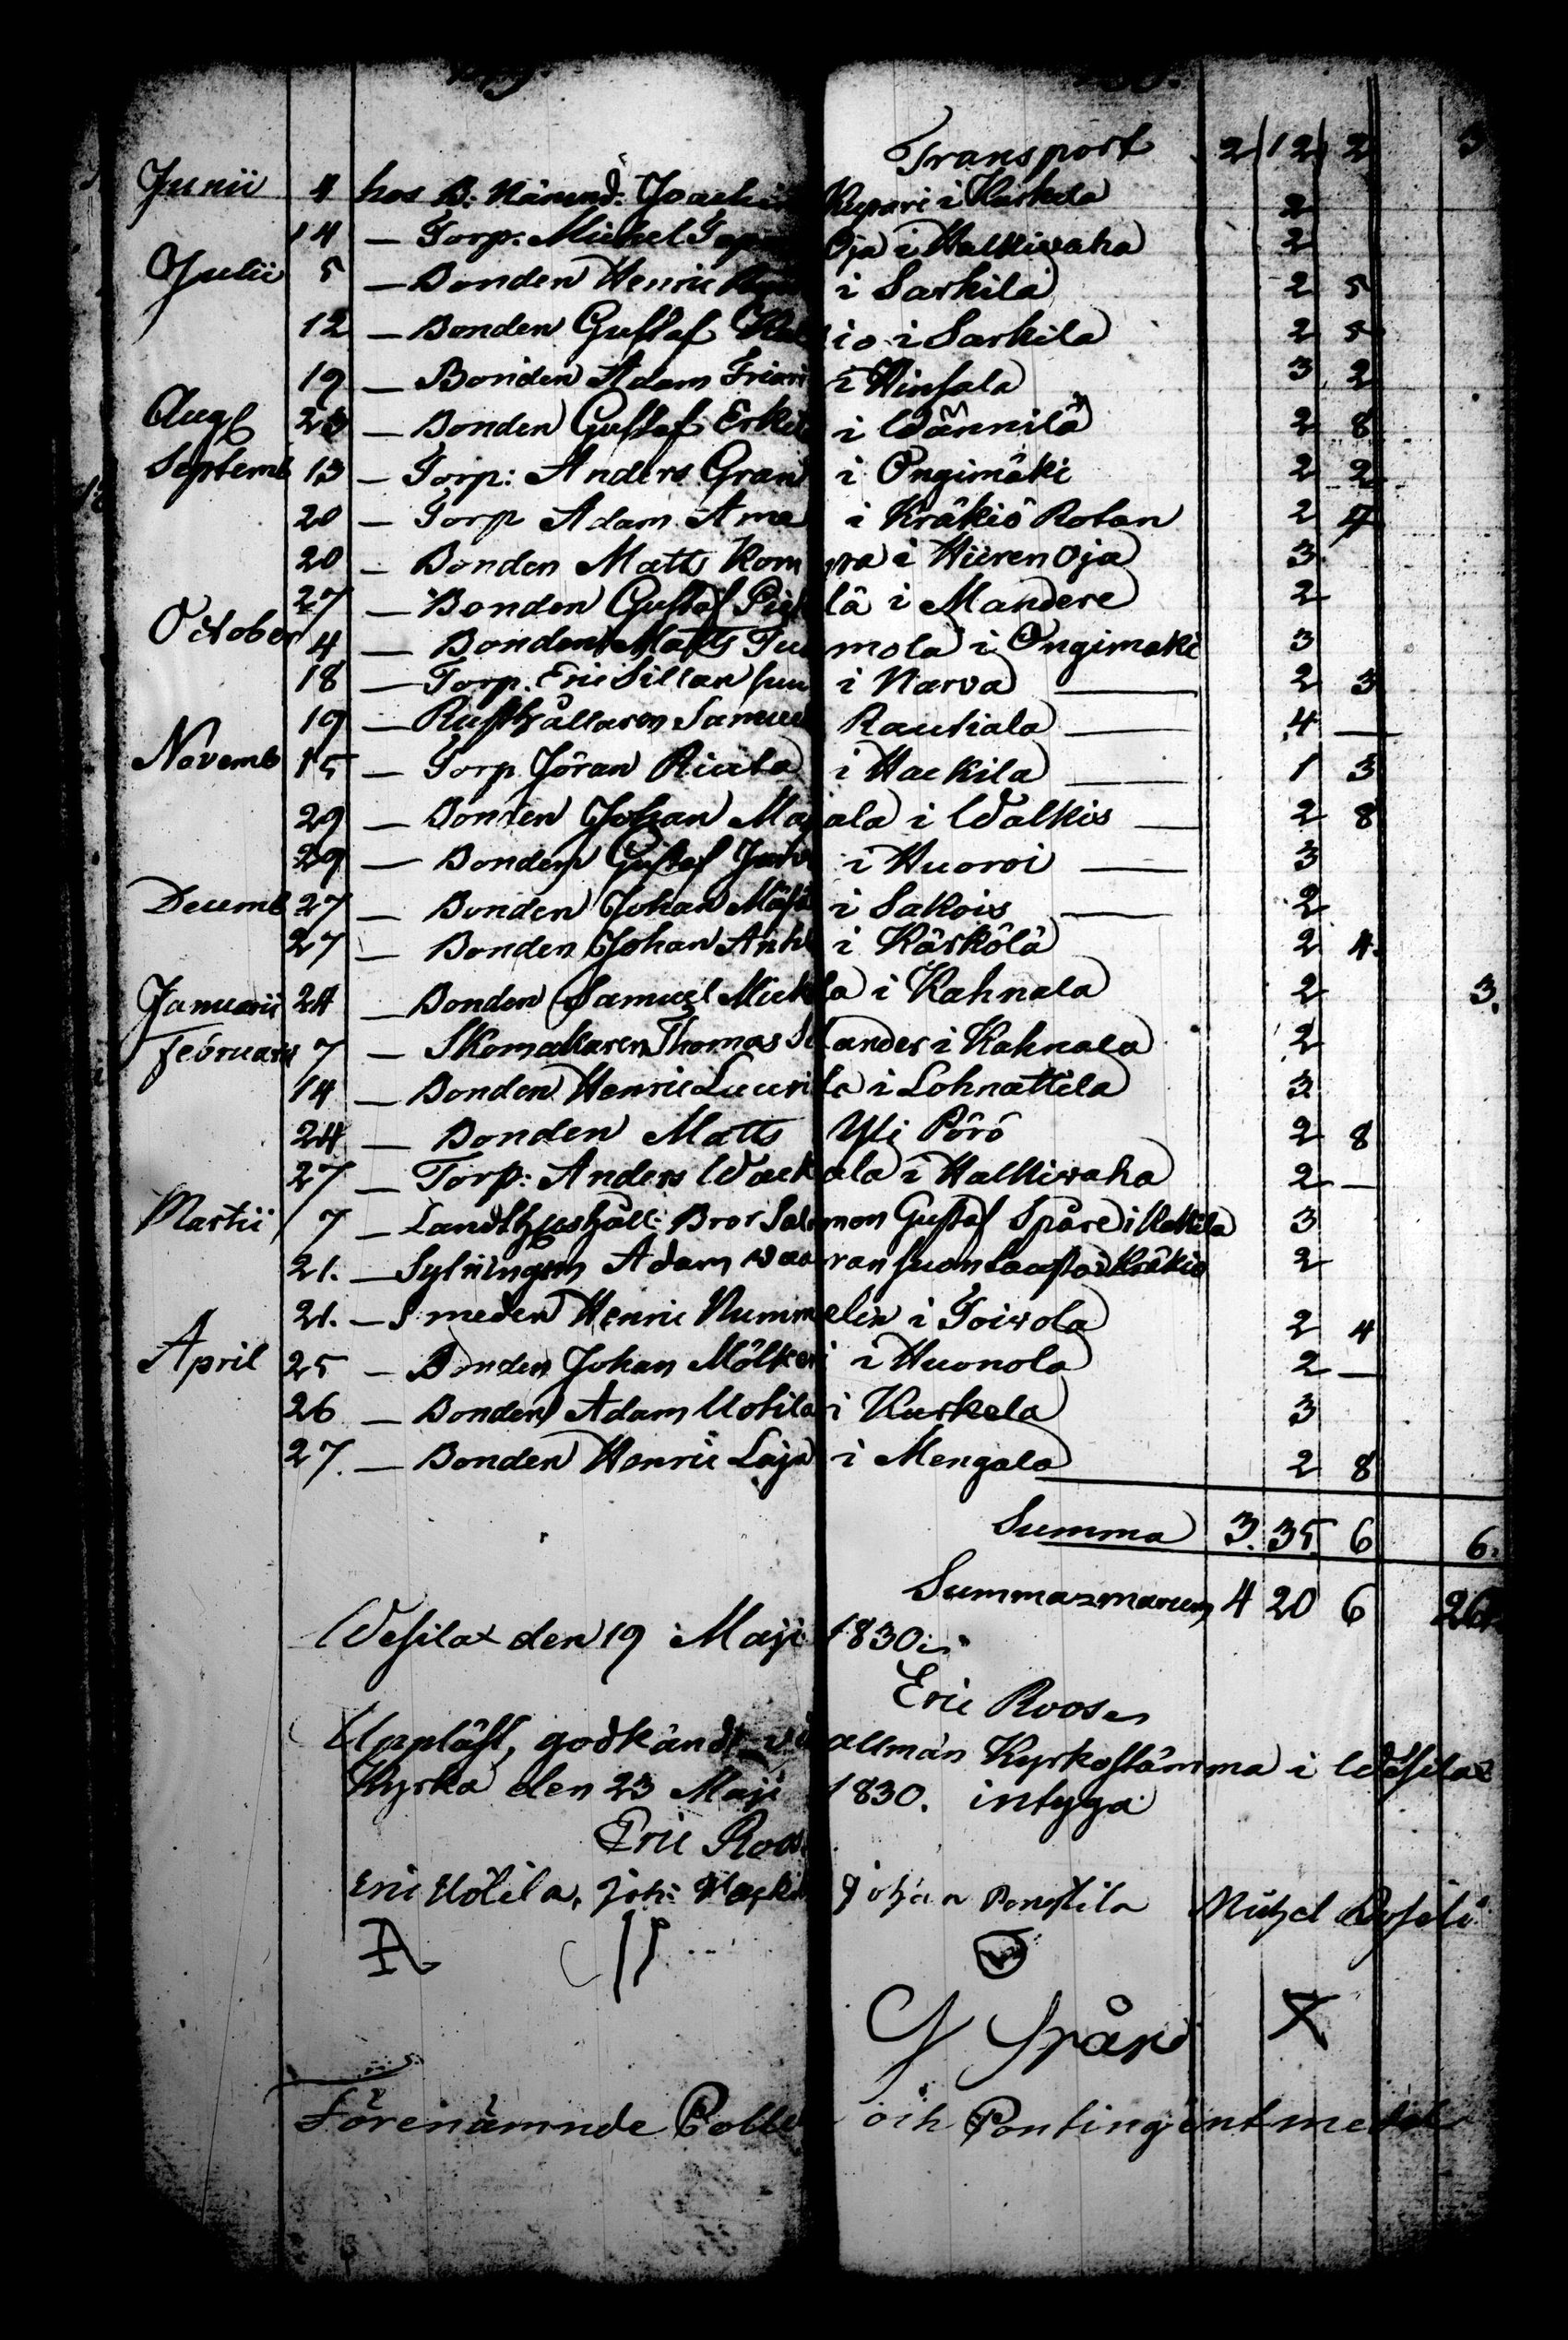 Transport 2 12 2 3
Junii 4 hos B: Nämnd: Joachim Kepari i Kuskela 2
14 — Torp: Michel Oja i Halkivaha 2
Julii 5 — Bonden Henric i Sarkila 2 5
12 — Bonden Gustaf io i Sarkila 2 5
19 — Bonden Adam i Hinsala 3 2
Aug 23 — Bonden Gustaf Erkilä i Wännilä 2 8
Septemb 13 — Torp: Anders Gran i Ongimäki 2 2
20 — Torp Adam i Kräkiö Rotan 2 4
20 — Bonden Matts i Hiirenoja 3
27 — Bonden Gustaf lä i Mandere 2
October 4 — Bonden Matts Tuomola i Ongimäki 3
18 — Torp. Eric Sillansuu i Narva — 2 3
19 — Rusthållaren Samuel Rautiala — 4 —
Novemb 15 — Torp Jöran i Hackila — 1 3
29 — Bonden Johan ala i Walkis — 2 8
29 — Bonden Gustaf i Huoroi — 3
Decemb 27 — Bonden Johan i Sakois — 2
27 — Bonden Johan i Kärkölä 2 4.
Januarii 24 — Bonden Samuel Mickola i Kahnala 2 3.
Februarii 7 — Skomakaren Thomas Selander i Kahnala 2
14 — Bonden Henric Luurila i Lohnattila 3
24 — Bonden Matts Yli Pörö 2 8
27 — Torp: Anders ala i Halkivaha 2 —
Martii 7 — Bror Salomon Gustaf Spåre i 3
21. — Adam i Kräkiö 2
21. — Smeden Henric Nummelin i Toivola 2 4
April 25 — Bonden Johan Mölkeri i Huonola 2 —
26 — Bonden Adam Uotila i Kuskela 3
27. — Bonden Henric Laja i Mengala 2 8
Summa 3. 35. 6 6.
Summa summarum 4 20 6
Wesilax den 19 Maji 1830.
Eric Roos
Uppläst, godkändt vid allmän Kyrkostämma i Wesilax
Kyrka den 23 Maji 1830. intyga
Eric Roos
Eric Uotila, Joh: Johan Ponstila Michel
G Spåre
Förenämnde och Contingent medel